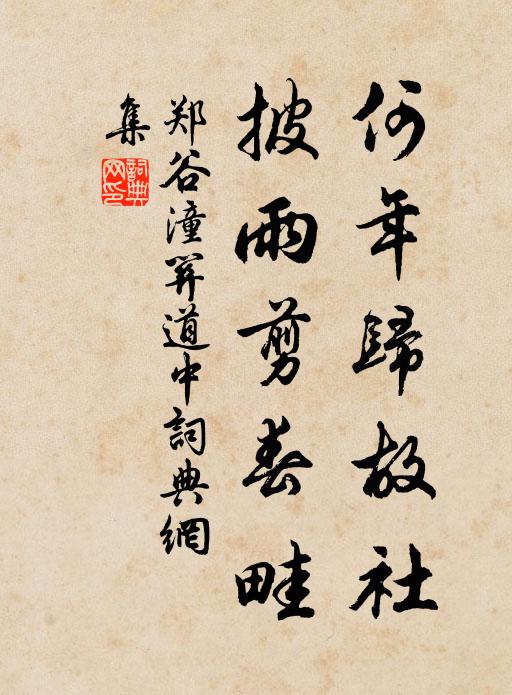 何年歸故社
披雨剪春畦
郑谷潼关道中詞典網
集
詞典網印